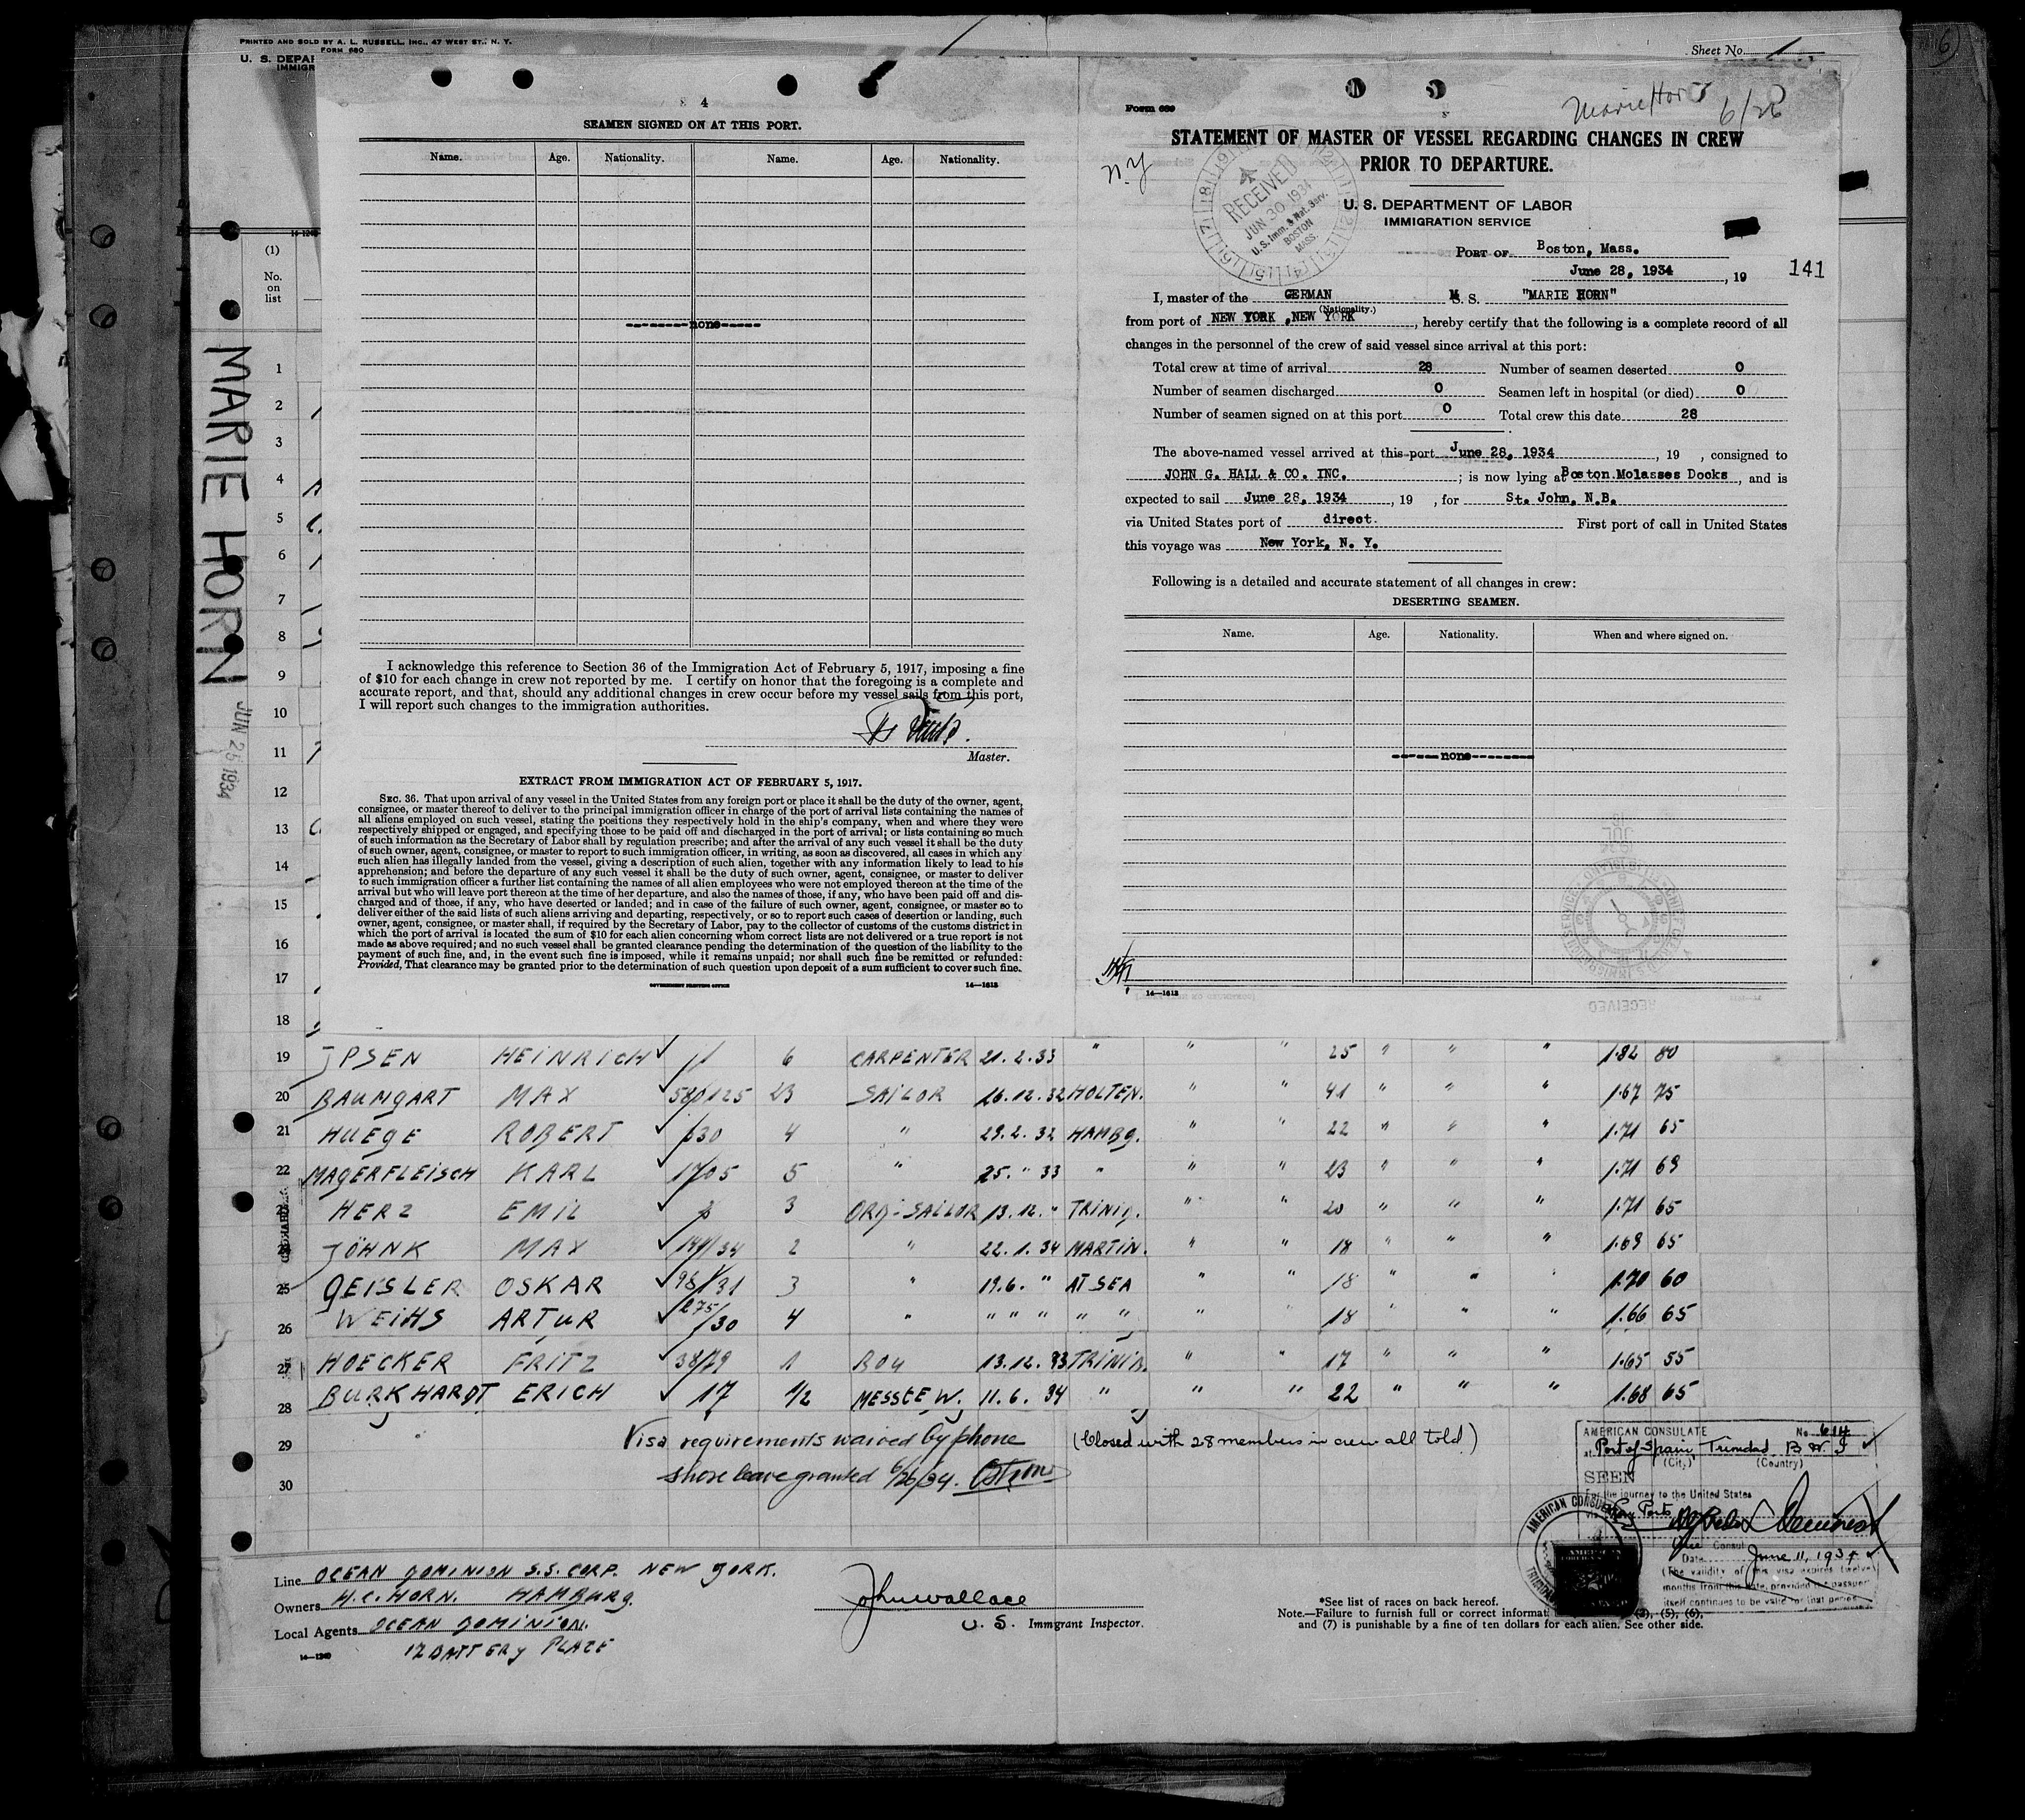 PRINTED AND SOLD BY A. L. RUSSELL, INC., 47 WEST ST., N. Y.
FORM 680
U. S. DEPA
IMMIGR
Sheet No. 1
6
(1)
No.
on
list
MARIE HORN
JUN 25 1934
4
SEAMEN SIGNED ON AT THIS PORT.
Name. Age. Nationality. Name. Age. Nationality.
none
I acknowledge this reference to Section 36 of the Immigration Act of February 5, 1917, imposing a fine
of $10 for each change in crew not reported by me. I certify on honor that the foregoing is a complete and
accurate report, and that, should any additional changes in crew occur before my vessel sails from this port,
I will report such changes to the immigration authorities.
Master.
EXTRACT FROM IMMIGRATION ACT OF FEBRUARY 5, 1917.
SEC. 36. That upon arrival of any vessel in the United States from any foreign port or place it shall be the duty of the owner, agent,
consignee, or master thereof to deliver to the principal immigration officer in charge of the port of arrival lists containing the names of
all aliens employed on such vessel, stating the positions they respectively hold in the ship's company, when and where they were
respectively shipped or engaged, and specifying those to be paid off and discharged in the port of arrival; or lists containing so much
of such information as the Secretary of Labor shall by regulation prescribe; and after the arrival of any such vessel it shall be the duty
of such owner, agent, consignee, or master to report to such immigration officer, in writing, as soon as discovered, all cases in which any
such alien has illegally landed from the vessel, giving a description of such alien, together with any information likely to lead to his
apprehension; and before the departure of any such vessel it shall be the duty of such owner, agent, consignee, or master to deliver
to such immigration officer a further list containing the names of all alien employees who were not employed thereon at the time of the
arrival but who will leave port thereon at the time of her departure, and also the names of those, if any, who have been paid off and dis-
charged and of those, if any, who have deserted or landed; and in case of the failure of such owner, agent, consignee, or master so to
deliver either of the said lists of such aliens arriving and departing, respectively, or so to report such cases of desertion or landing, such
owner, agent, consignee, or master shall, if required by the Secretary of Labor, pay to the collector of customs of the customs district in
which the port of arrival is located the sum of $10 for each alien concerning whom correct lists are not delivered or a true report is not
made as above required; and no such vessel shall be granted clearance pending the determination of the question of the liability to the
payment of such fine, and, in the event such fine is imposed, while it remains unpaid; nor shall such fine be remitted or refunded:
Provided, That clearance may be granted prior to the determination of such question upon deposit of a sum sufficient to cover such fine.
GOVERNMENT PRINTING OFFICE 14—1613
Form 689
Marie Horn 6/26
STATEMENT OF MASTER OF VESSEL REGARDING CHANGES IN CREW
PRIOR TO DEPARTURE.
N.Y
RECEIVED
JUN 30 1934
U.S. Imm. & Nat. Serv.
BOSTON
MASS.
U. S. DEPARTMENT OF LABOR
IMMIGRATION SERVICE
PORT OF Boston, Mass.
June 28, 1934, 19
141
I, master of the GERMAN M S. S. "MARIE HORN"
(Nationality.)
from port of NEW YORK, NEW YORK, hereby certify that the following is a complete record of all
changes in the personnel of the crew of said vessel since arrival at this port:
Total crew at time of arrival 28 Number of seamen deserted 0
Number of seamen discharged 0 Seamen left in hospital (or died) 0
Number of seamen signed on at this port 0 Total crew this date 28
The above-named vessel arrived at this port June 28, 1934, 19 , consigned to
JOHN G. HALL & CO. INC. ; is now lying at Boston Molasses Docks, and is
expected to sail June 28, 1934, 19 , for St. John, N.B.
via United States port of direct. First port of call in United States
this voyage was New York, N. Y.
Following is a detailed and accurate statement of all changes in crew:
DESERTING SEAMEN.
Name. Age. Nationality. When and where signed on.
none
14—1613
1
2
3
4
5
6
7
8
9
10
11
12
13
14
15
16
17
18
19 JPSEN HEINRICH 6 CARPENTER 21.2.33 " " " 25 " " " 1.82 80
20 BAUMGART MAX 580125 23 SAILOR 16.12.32 HOLTEN. " " 41 " " " 1.67 75
21 HUEGE ROBERT 630 4 " 29.2.32 HAMBG. " " 22 " " " 1.71 65
22 MAGERFLEISCH KARL 1705 5 " 25. " 33 " " " 23 " " " 1.71 69
23 HERZ EMIL 3 ORD-SAILOR 13.12. " TRINID. " " 20 " " " 1.71 65
24 JÖHNK MAX 141/34 2 " 22.1.34 MARTIN. " " 18 " " " 1.69 65
25 GEISLER OSKAR 98/31 3 " 19.6. " AT SEA " " 18 " " 1.70 60
26 WEIHS ARTUR 275/30 4 " " " " " " " " 18 " " " 1.66 65
27 HOECKER FRITZ 38/29 1 BOY 13.12.33 TRINID. " " 17 " " " 1.65 55
28 BURKHARDT ERICH 17 1/2 MESSTEW. 11.6.34 " " " 22 " " " 1.68 65
29 Visa requirements waived by phone (Closed with 28 members in crew all told)
30 shore leave granted 6/26/34.
AMERICAN CONSULATE No. 614
at Port of Spain Trinidad B.W.I
(City) (Country)
SEEN
For the journey to the United States
via
Vice Consul
Date June 11, 1934
(The validity of this visa expires twelve
months from this date, provided the passport
itself continues to be valid for that period
AMERICAN CONSULATE
Line OCEAN DOMINION S.S. CORP. NEW YORK.
Owners H.C. HORN. HAMBURG.
Local Agents OCEAN DOMINION.
17 BATTERY PLACE
14—1240
John Wallace
U. S. Immigrant Inspector.
*See list of races on back hereof.
Note.—Failure to furnish full or correct informat (3), (5), (6),
and (7) is punishable by a fine of ten dollars for each alien. See other side.